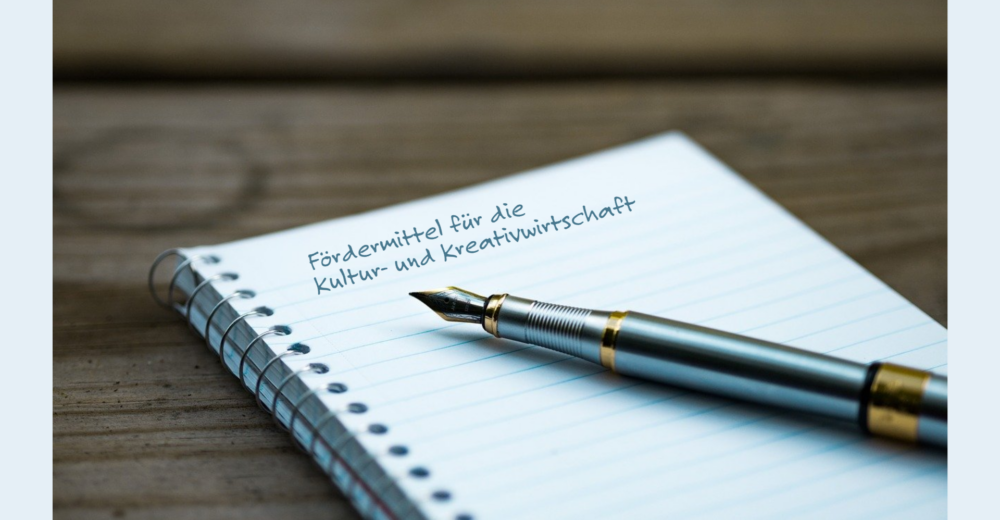 Fördermittel für die
Kultur- und Kreativwirtschaft